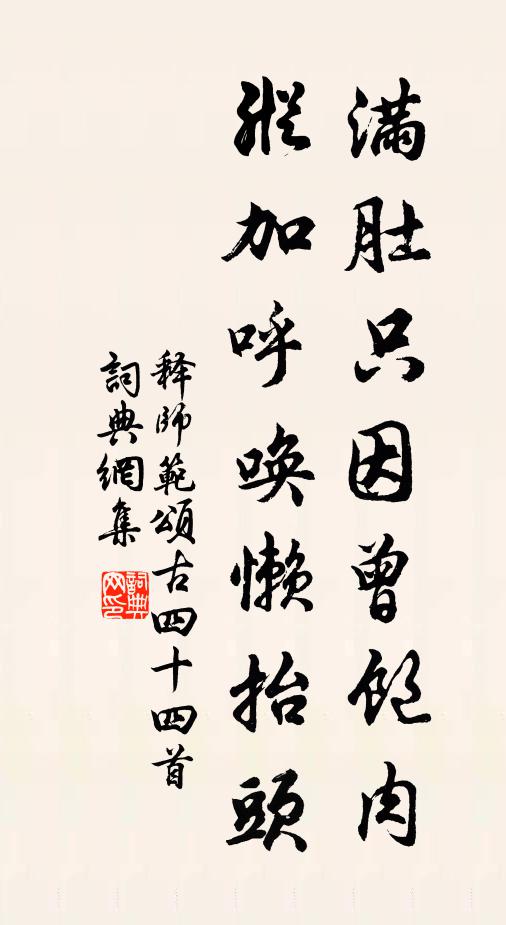 满肚只因曾饱肉
纵加呼唤懒抬头
释师範颂古四十四首
詞典網集
詞典网印